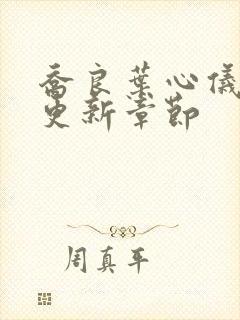 喬良葉心儀
更新章節
周真平